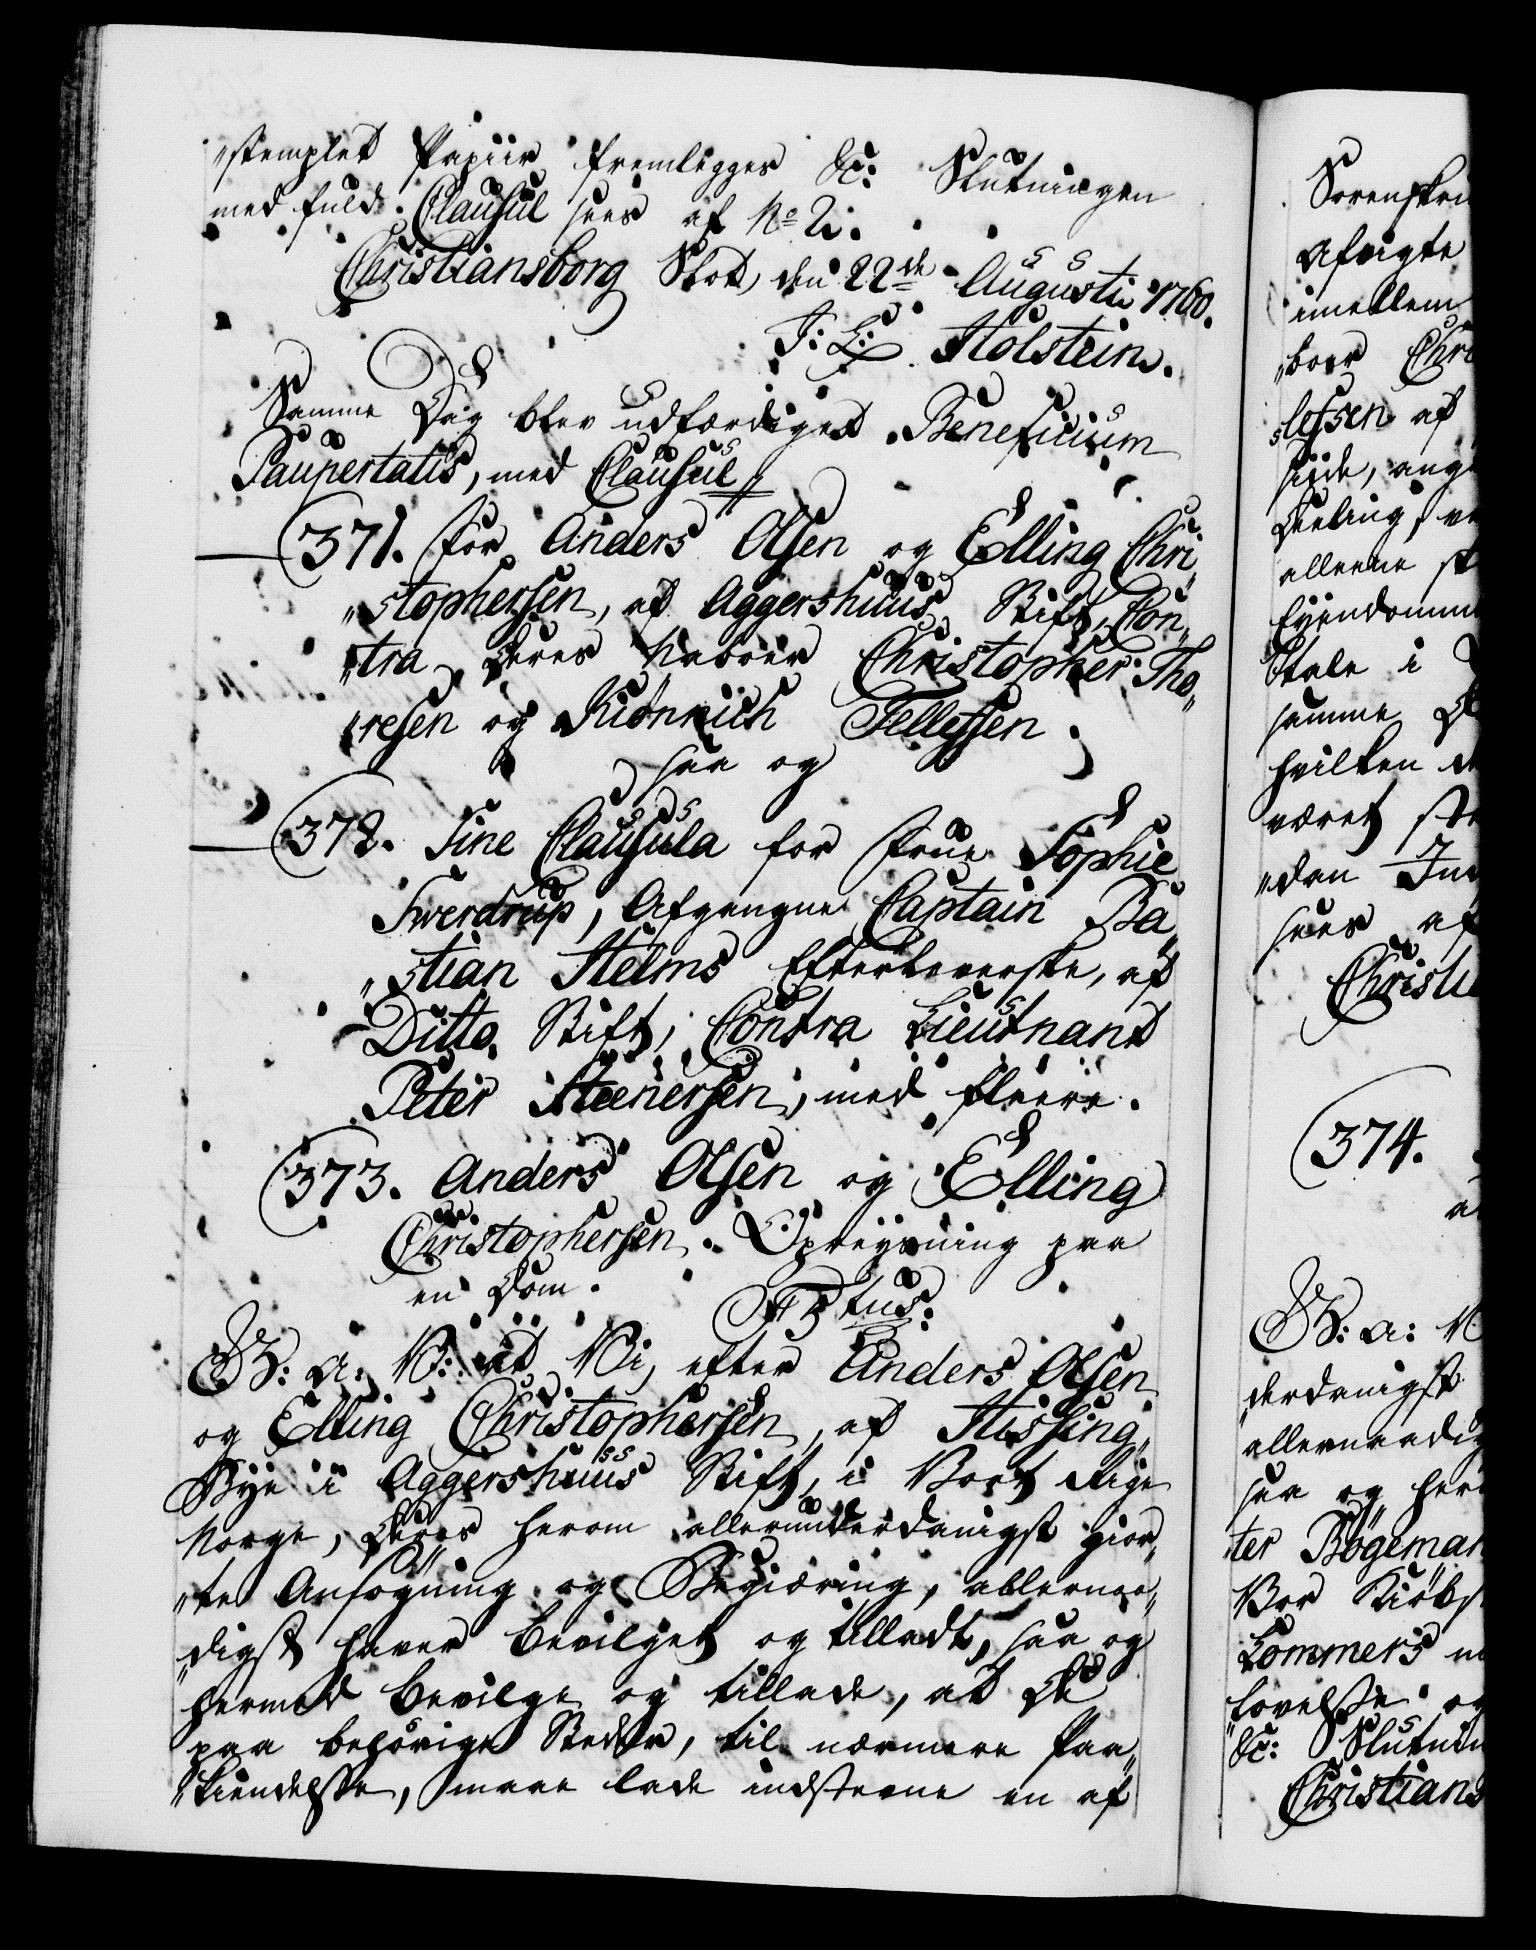 „stemplet Papiir fremlegges &c: Slutningen
med fuld Clausul sees af No 2.
Christiansborg Slot, den 22de Augusti 1760.
J: L: Holstein.
Samme Dag blev udfærdiget Beneficium
Paupertatis, med Clausul
371. For Anders Olsen og Elling Chri„
„stophersen, af Aggershuus Stift, Con„
„tra deres Naboer Christopher Tho„
„resen og Kiønnich Tellefsen.
saa og
372. Sine Clausula for Frue Sophie
Swerdrup, Afgangne Captain Ba„
„stian Helms Efterleverske, af
Ditto Stift, Contra Lieutnant
Peter Steenersen, med fleere.
373. Anders Olsen og Elling
Christophersen. Opreysning paa
en Dom.
F 5tus.
G: A: V: at Vi, efter Anders Olsen
og Elling Christophersen, af Hissing„
Bye i Aggershuus Stift, i Vort Rige
Norge, deres herom allerunderdanigst gior„
„te Ansøgning og Begiæring, allernaa„
„digst haver bevilget og tilladt, saa og
hermed bevilge og tillade, at De
paa behørige Steder, til nærmere Paa„
„kiendelse, maae lade indstevne en af
Sorenskri
Afsigte
imellem
„boer Chri
slefsen af
siide, ang
Deeling, ve
alleene st
Eyendomm
Stole i
samme D
hvilken d
været st
„den Ind
sees af
Christi
374.
G: A: V
„derdanigst
allernaadig
saa og her
ter Bøgeman
Vor Kiøbst
Lommers
„lovelse og
&c: Slutnin
Christians